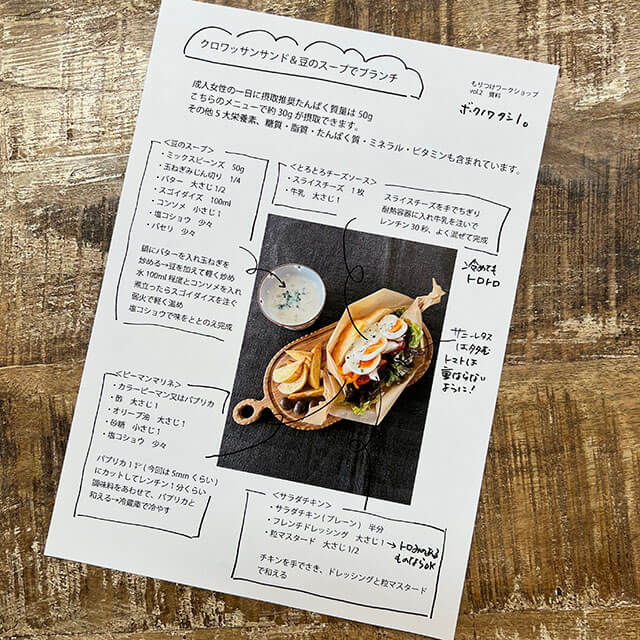 クロワッサンサンド＆豆のスープでブランチ
もりつけワークショップ
vol.2 資料
ボクノワタシノ。
成人女性の一日に摂取推奨たんぱく質量は50g
こちらのメニューで約30gが摂取できます。
その他5大栄養素、糖質・脂質・たんぱく質・ミネラル・ビタミンも含まれています。
＜豆のスープ＞
・ミックスビーンズ 50g
・玉ねぎみじん切り 1/4
・バター 大さじ1/2
・スゴイダイズ 100ml
・コンソメ 小さじ1
・塩コショウ 少々
・パセリ 少々
鍋にバターを入れ玉ねぎを
炒める→豆を加えて軽く炒め
水100ml程度とコンソメを入れ
煮立ったらスゴイダイズを注ぐ
弱火で軽く温め
塩コショウで味をととのえ完成
＜とろとろチーズソース＞
・スライスチーズ 1枚
・牛乳 大さじ1
スライスチーズを手でちぎり
耐熱容器に入れ牛乳を注いで
レンチン30秒、よく混ぜて完成
冷めても
トロトロ
サニーレタス
は多め
トマトは
重ならない
ように!
＜ピーマンマリネ＞
・カラーピーマン又はパプリカ
・酢 大さじ1
・オリーブ油 大さじ1
・砂糖 小さじ1
・塩コショウ 少々
パプリカ1㌢(今回は5mmくらい)
にカットしてレンチン1分くらい
調味料をあわせて、パプリカと
和える→冷蔵庫で冷やす
＜サラダチキン＞
・サラダチキン(プレーン) 半分
・フレンチドレッシング 大さじ1
・粒マスタード 大さじ1/2
→トロみのある
ものならOK
チキンを手でさき、ドレッシングと粒マスタード
で和える